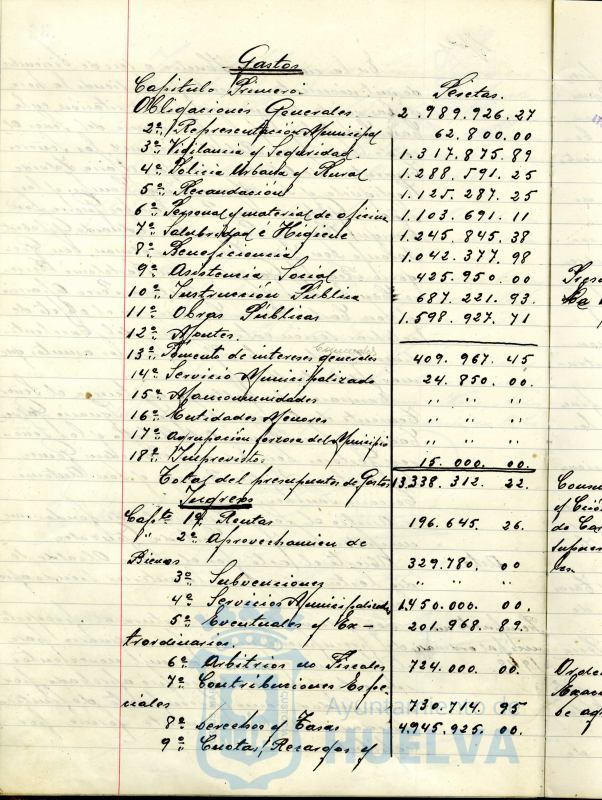 Gastos
Capitulo Primero: Pesetas.
Obligaciones Generales 2.989.926.27
2º Representación Municipal 62.800.00
3º Vigilancia y Seguridad 1.317.875.89
4º Policia Urbana y Rural 1.288.591.25
5º Recaudación 1.125.287.25
6º Personal y material de oficina 1.103.691.11
7º Salubridad é Higiene 1.245.845.38
8º Beneficiencia 1.042.377.98
9º Asistencia Social 425.950.00
10º Instrucción Publica 687.221.93.
11º Obras Públicas 1.598.927.71
12º Montes.
13º Fomento de intereses generales 409.967.45
14º Servicio Municipalizado 24.850.00.
15º Mancomunidades " " "
16º Entidades Menores " " "
17º Agrupación forzosa del Municipio " " "
18º Imprevistos 15.000.00.
Total del presupuesto de Gastos 13.338.312.22.
Ingresos
Capto 1º Rentas 196.645.26.
" 2º Aprovechamien de
Bienes 329.780.00
3º Subvenciones " " "
4º Servicios Municipalizados 1.450.000.00.
5º Eventuales y Ex-
traordinarios. 201.968.89.
6º Arbitrios no Fiscales 724.000.00
7º Contribuciones Espe-
ciales 730.714.95
8º Derechos y Tasas 4.945.925.00.
9º Cuotas, Recargos y
Ayuntamiento de
HUELVA